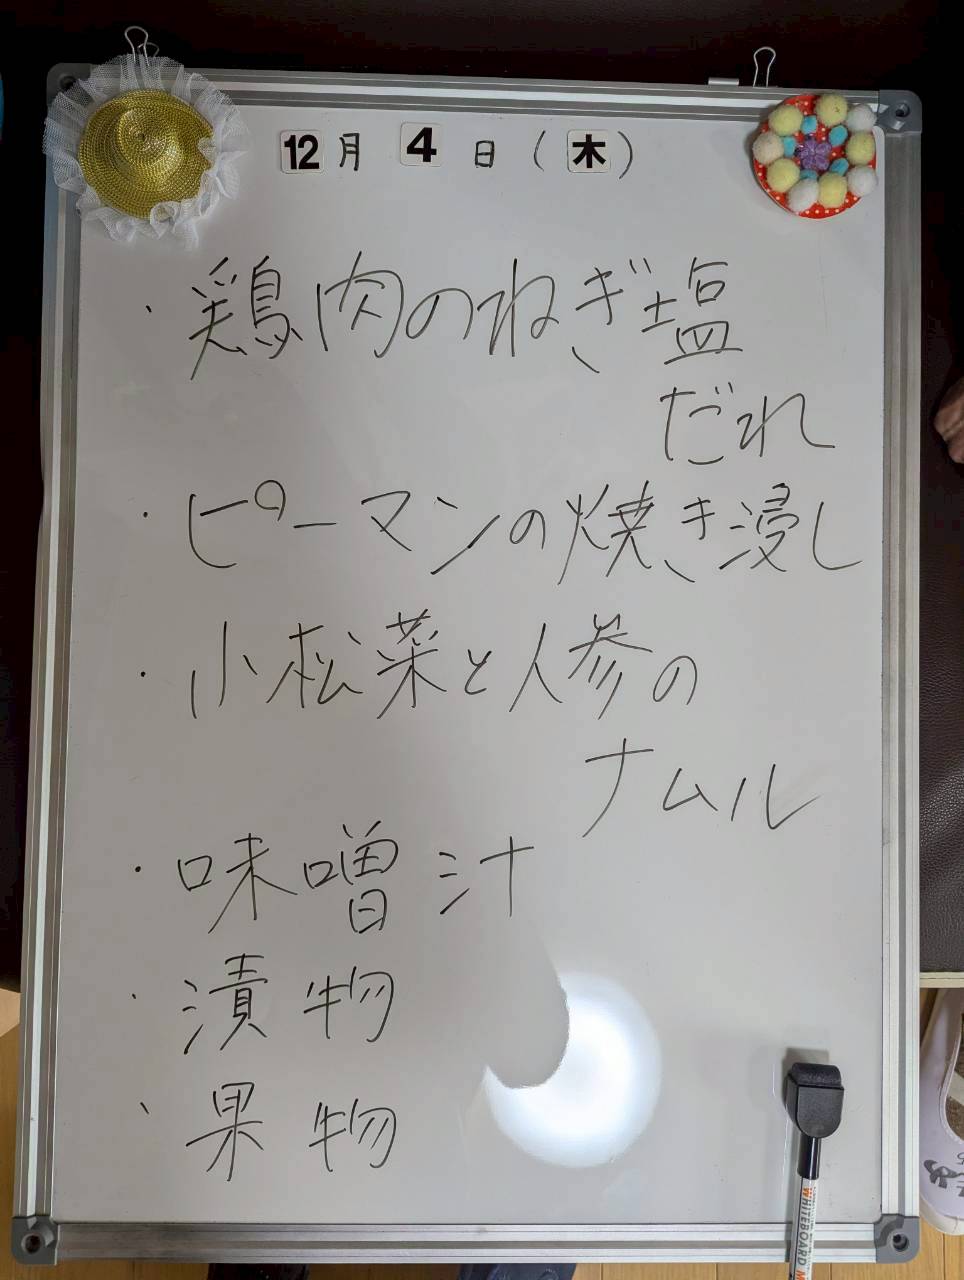 12月 4 日 (木)
・鶏肉のねぎ塩
だれ
・ピーマンの焼き浸し
・小松菜と人参の
ナムル
・味噌汁
・漬物
・果物
WHITEBOARD M